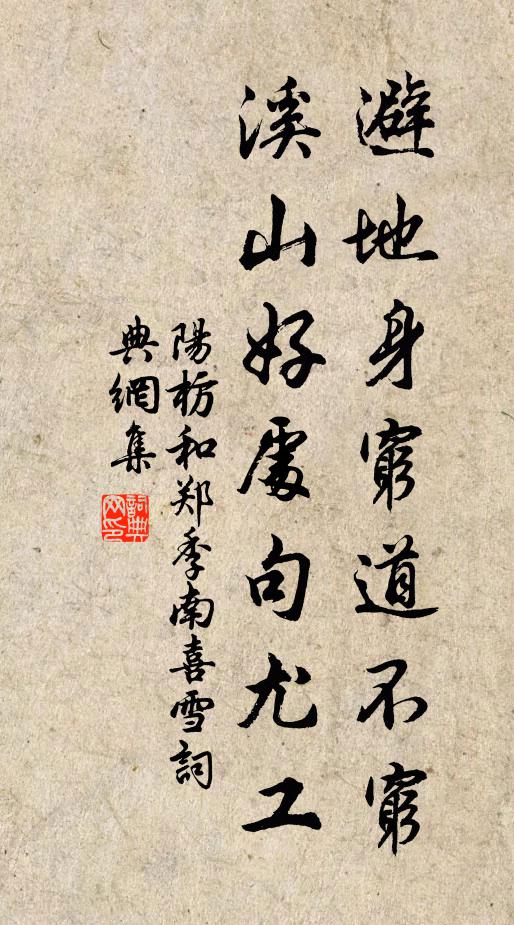 避地身窮道不窮
溪山好處句尤工
陽枋和郑季南喜雪詞
典網集
詞典網印